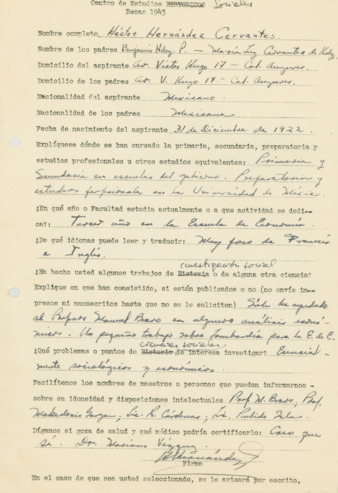 Centro de Estudios HISTORICOS Sociales
Becas 1943
Nombre completo, Héctor Hernández Cervantes.
Nombre de los padres Benjamín Hdez. P. — María Luz Cervantes de Hdz.
Domicilio del aspirante Av. Víctor Hugo 17 - Col. Anzures.
Domicilio de los padres Av. V. Hugo 17 - Col. Anzures.
Nacionalidad del aspirante Mexicano
Nacionalidad de los padres Mexicana
Fecha de nacimiento del aspirante 31 de diciembre de 1922.
Explíquece dónde se han cursado la primaria, secundaria, preparatoria y
estudios profesionales u otros estudios equivalentes: Primaria y
Secundaria en escuelas del gobierno. Preparatoria y
estudios profesionales en la Universidad de México
¿En qué año o Facultad estudia actualmente o a que actividad se dedi-
ca?: Tercer año en la Escuela de Economía.
¿De qué idiomas puede leer y traducir: Muy poco de Francés
e Inglés.
investigación social
¿Ha hecho usted algunos trabajos de Historia o de alguna otra ciencia?
Explique en que han consistido, si están publicados o no (no envíe im-
presos ni manuscritos hasta que no se le soliciten) Sólo he ayudado
al Profesor Manuel Bravo en algunos análisis econó-
micos. Un pequeño trabajo sobre Lombardía para la E. de E.
ciencias sociales
¿Qué problemas o puntos de Historia de interesa investigar? Esencial-
mente psicológicos y económicos.
Facilítenos los nombres de maestros o personas que puedan informarnos
sobre su idoneidad y disposiciones intelectuales Prof. M. Bravo, Prof.
Lic. R. Cárdenas, Lic. Pulido Islas.
Díganos si goza de salud y qué médico podría certificarlo: Creo que
sí. Dr. Mariano Vázquez.
Firma
En el caso de que sea usted seleccionado, se le avisará por escrito.